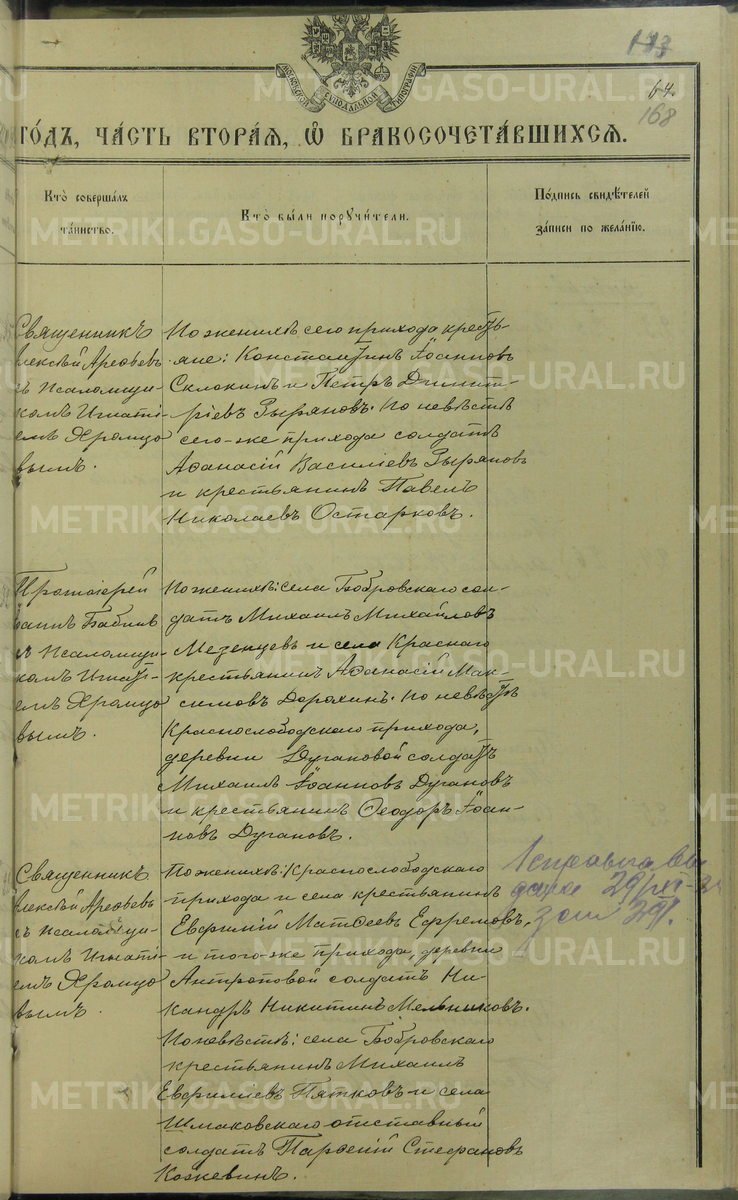 113
64.
168
МОСКОВСКОЙ СѴНОДАЛЬНОЙ ТИПОГРАФІИ
ГО́ДЪ, ЧА́СТЬ ВТОРА́Я, Ѡ БРАКОСОЧЕТА́ВШИХСЯ.
Кто̀ соверша́лъ
та́инство.
Кто̀ бы́ли поручи́тели.
По́дпись свидѣ́телей
за́писи по жела́нїю.
Священникъ
Алексѣй Арефьевъ
съ псаломщи-
комъ Игнаті-
емъ Хромцо
вымъ.
По женихѣ сего прихода кресть-
яне: Константинъ Іоанновъ
Склокинъ и Петръ Димит-
ріевъ Зыряновъ. По невѣстѣ
сего-же прихода солдатъ
Аѳанасій Василіевъ Зыряновъ
и крестьянинъ Павелъ
Николаевъ Остарковъ.
Протоіерей
Іоаннъ Бабинъ
съ псаломщи-
комъ Игнаті-
емъ Хромцо
вымъ.
По женихѣ: села Бобровскаго сол-
датъ Михаилъ Михайловъ
Мезенцевъ и села Краснаго
крестьянинъ Аѳанасій Мак-
симовъ Дорохинъ. По невѣстѣ
Краснослободскаго прихода,
деревни Дугановой солдатъ
Михаилъ Іоанновъ Дугановъ
и крестьянинъ Ѳеодоръ Іоан-
новъ Дугановъ.
Священникъ
Алексѣй Арефьевъ
съ псаломщи-
комъ Игнаті-
емъ Хромцо
вымъ.
По женихѣ: Краснослободскаго
прихода и села крестьянинъ
Евфимій Матѳеевъ Ефремовъ,
и того-же прихода, деревни
Антроповой солдатъ Ни-
кандръ Никитинъ Мельниковъ.
По невѣстѣ: села Бобровскаго
крестьянинъ Михаилъ
Евфиміевъ Пятковъ и села
Шмаковскаго отставный
солдатъ Парѳеній Стефановъ
Кожевинъ.
METRIKI.GASO-URAL.RU